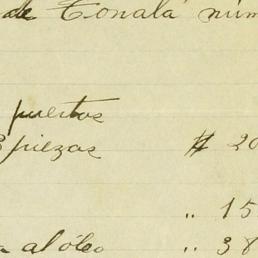 de Tonalá núm
puertos
piezas $ 20
„ 15
a al óleo „ 38